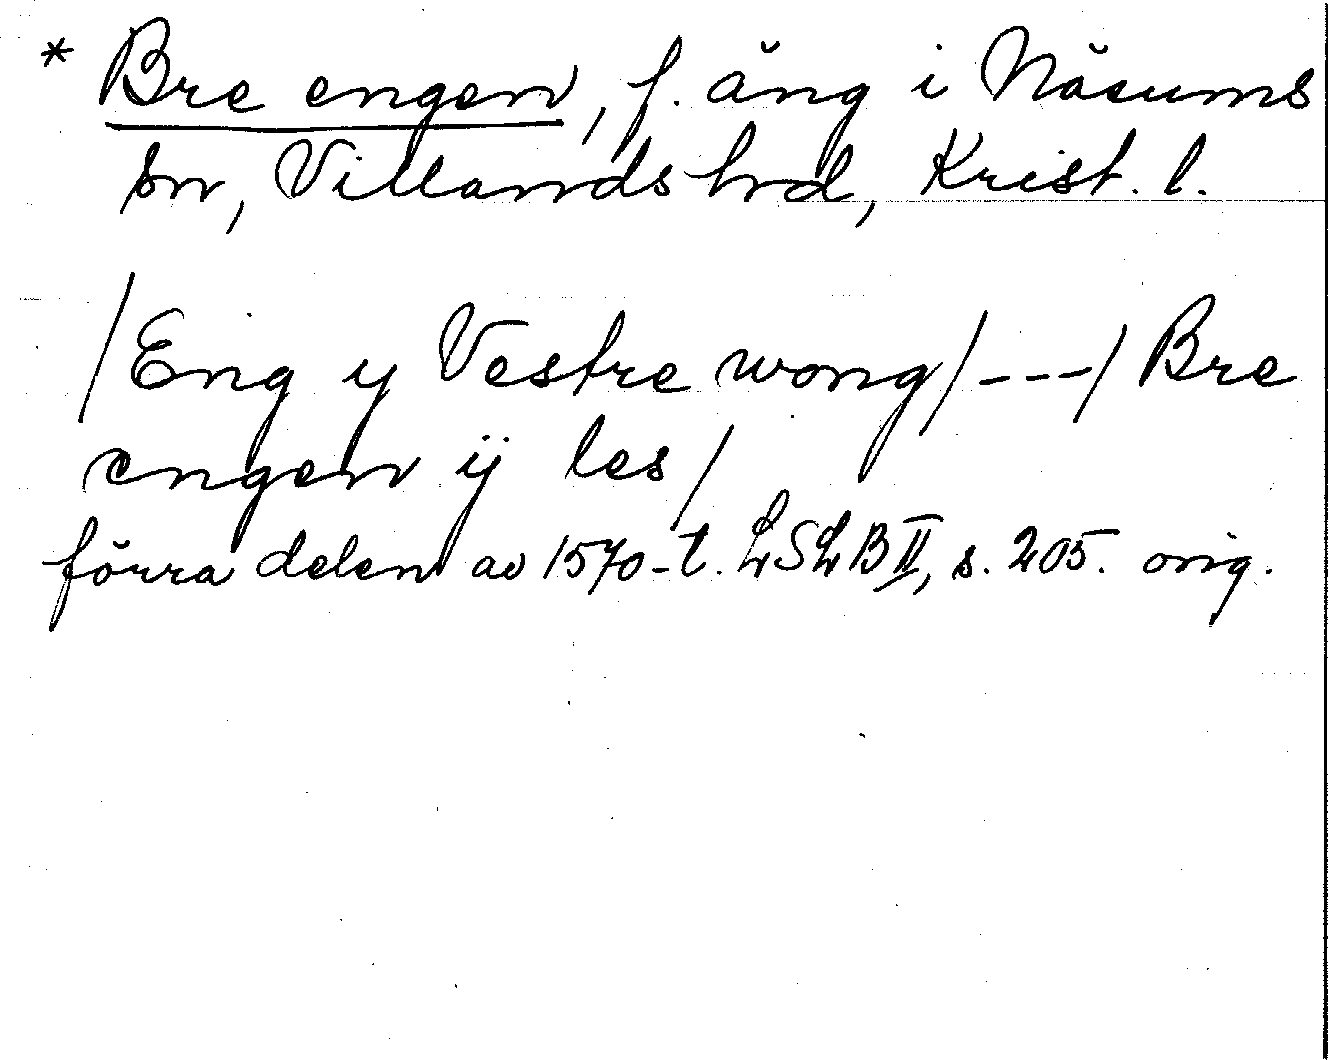 * Bre engen, f. äng i Näsums
sn, Villands hrd, Krist. l.
/Eng y Vestre wong/ --- / Bre
engen ij les/
förra delen av 1570-t. LSLB II, s. 205. orig.